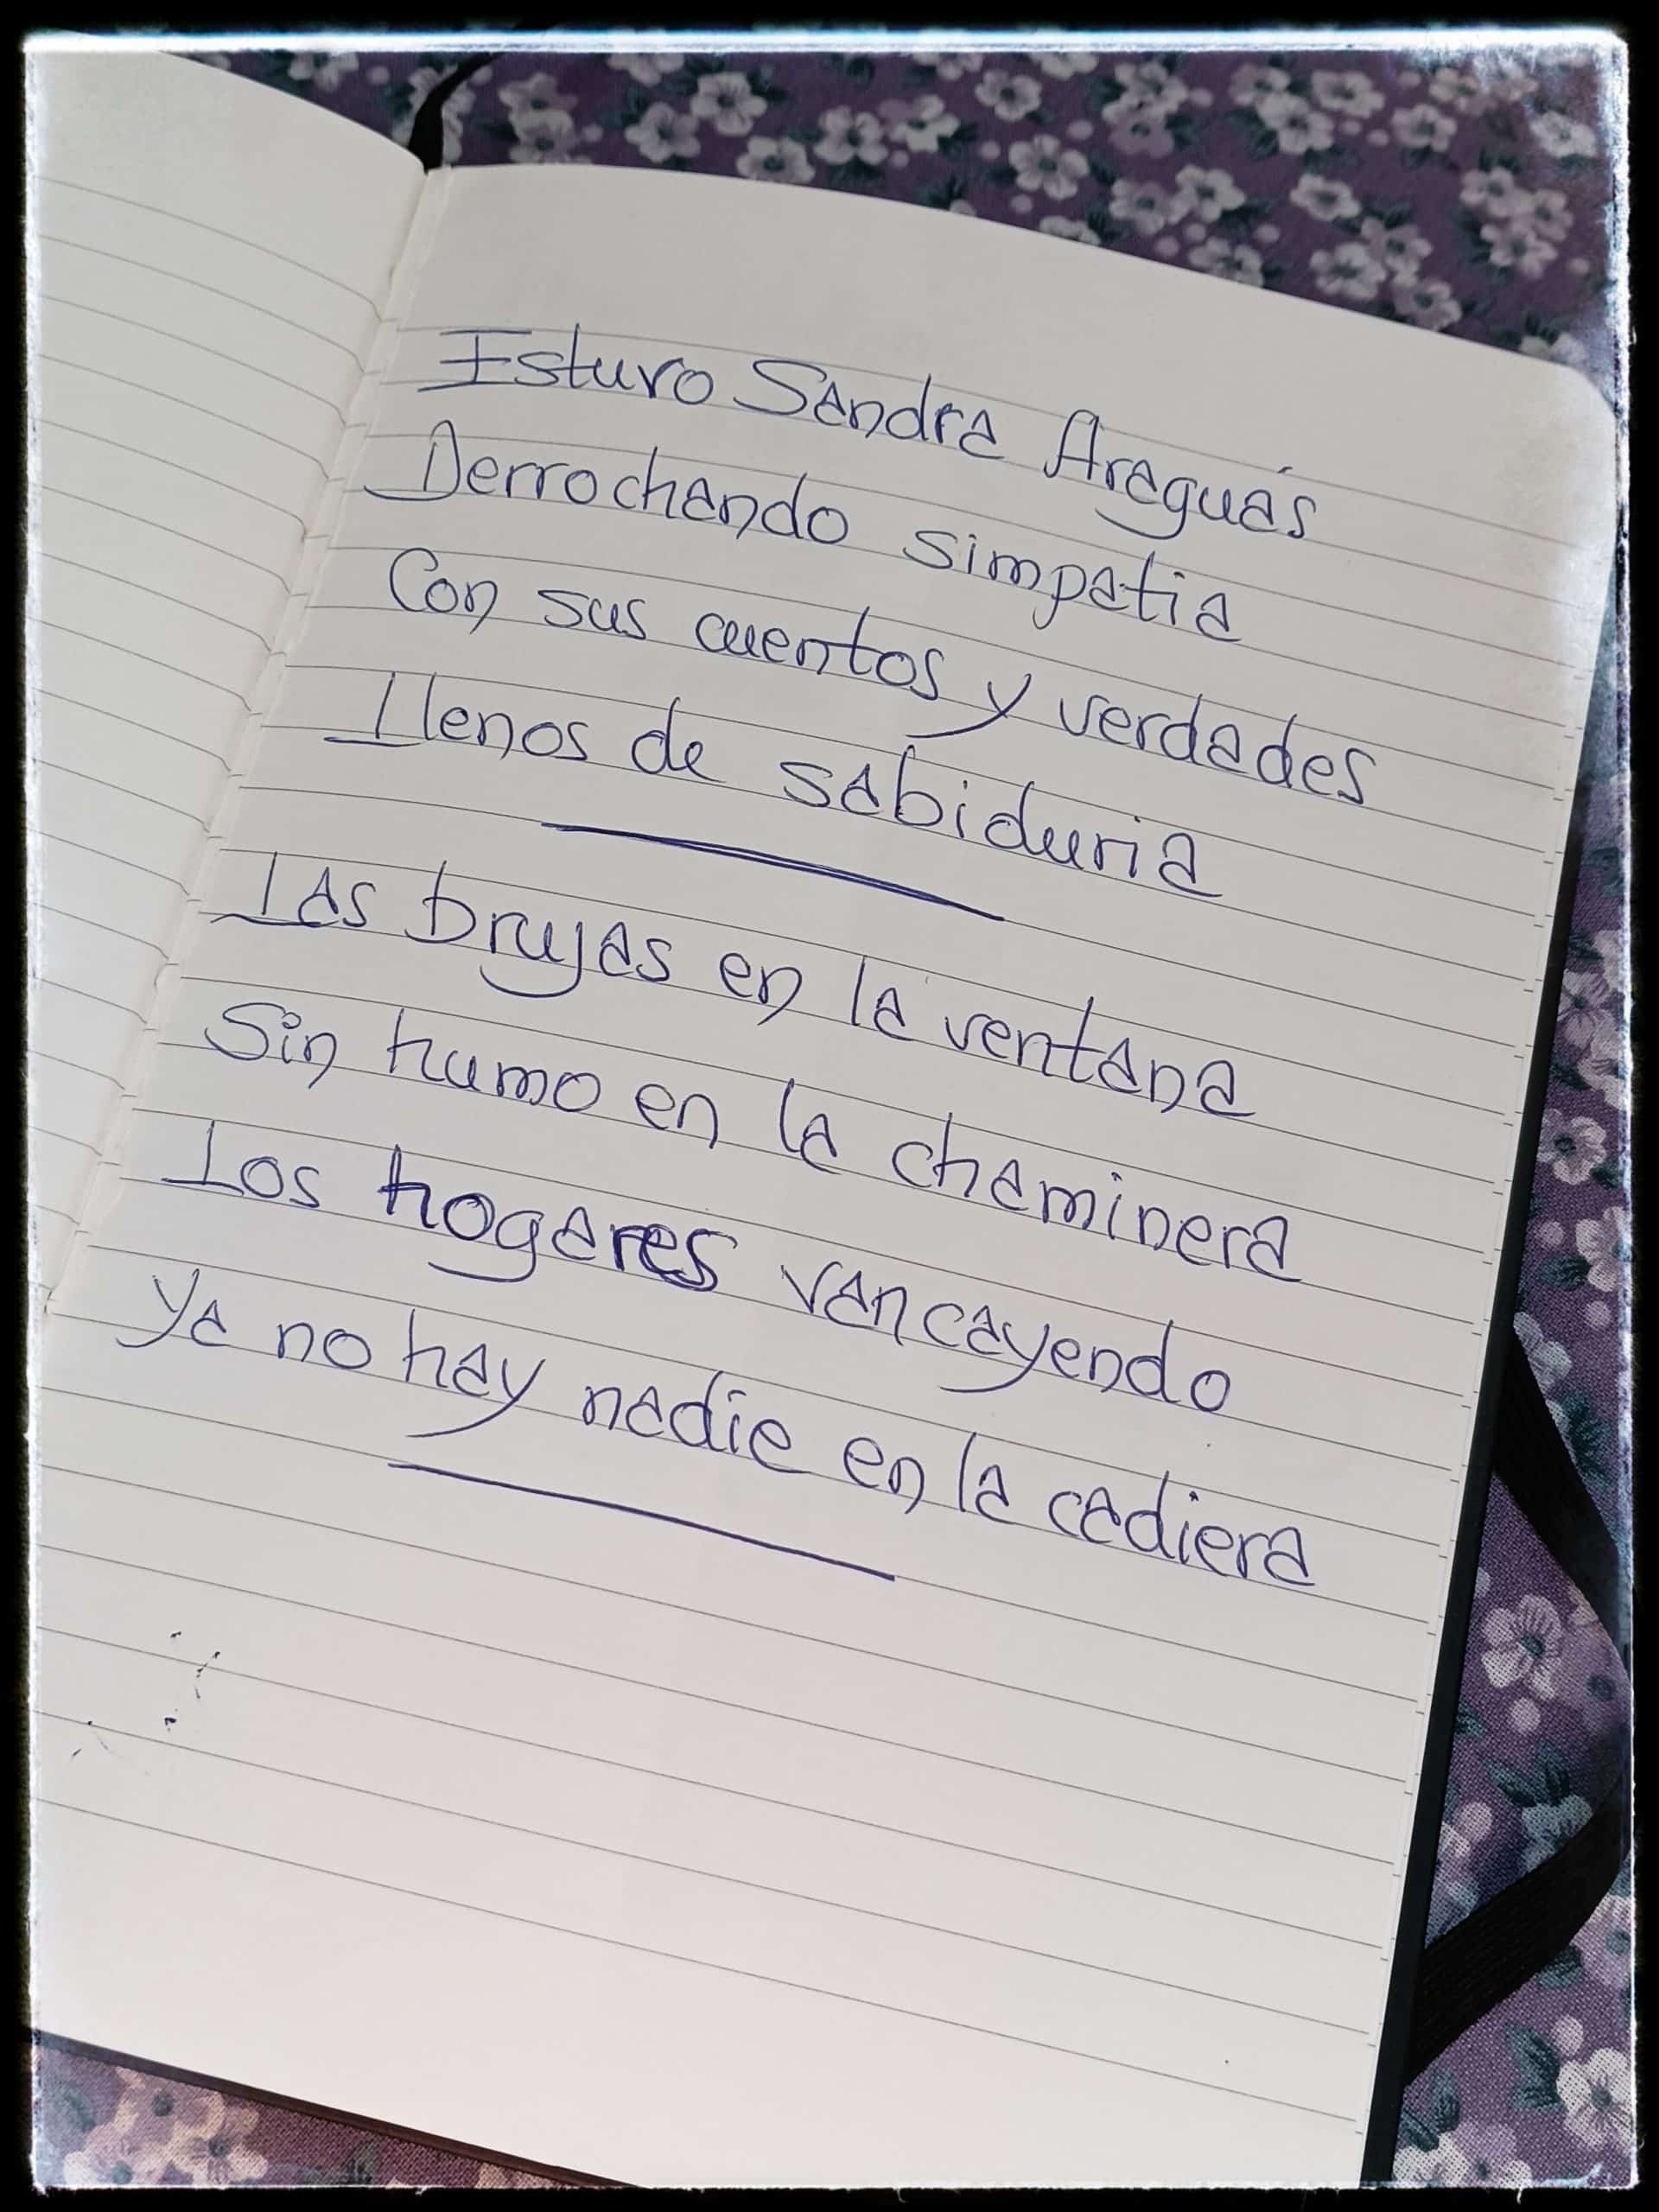 Estuvo Sandra Araguás
Derrochando simpatia
Con sus cuentos y verdades
Llenos de sabiduria
Las brujas en la ventana
Sin humo en la cheminera
Los hogares van cayendo
Ya no hay nadie en la cadiera